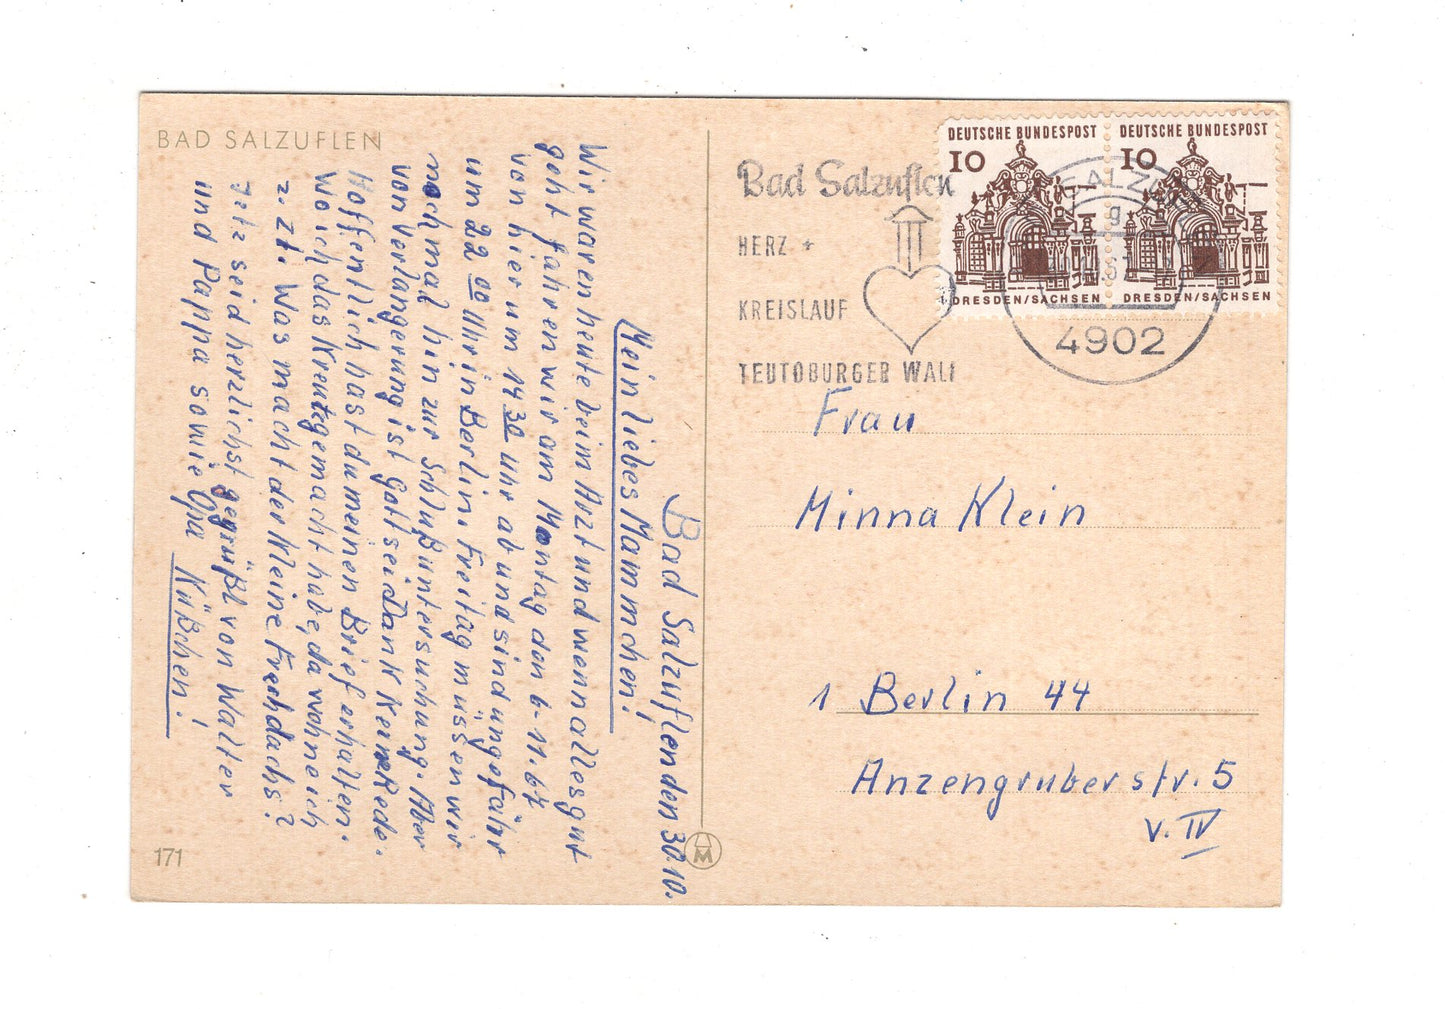 BAD SALZUFLEN
Bad Salzuflen den 30.10.
Mein liebes Mammchen!
Wir waren heute beim Arzt und wenn alles gut
geht fahren wir am Montag den 6-11.67
von hier um 14 30 uhr ab und sind ungefähr
um 22 00 Uhr in Berlin. Freitag müssen wir
nochmal hin zur Schlußuntersuchung. Aber
von Verlängerung ist Gott sei Dank keine Rede.
Hoffentlich hast du meinen Brief erhalten.
Wo ich das Kreutz gemacht habe, da wohne ich
z. Zt. Was macht der kleine Frechdachs?
Jetz seid herzlichst gegrüßt von Walter
und Pappa sowie Opa
Küßchen!
171
M
Bad Salzuflen
HERZ +
KREISLAUF
TEUTOBURGER WALD
DEUTSCHE BUNDESPOST
10
DRESDEN/SACHSEN
DEUTSCHE BUNDESPOST
10
DRESDEN/SACHSEN
g
4902
Frau
Minna Klein
1 Berlin 44
Anzengruberstr. 5
v. IV